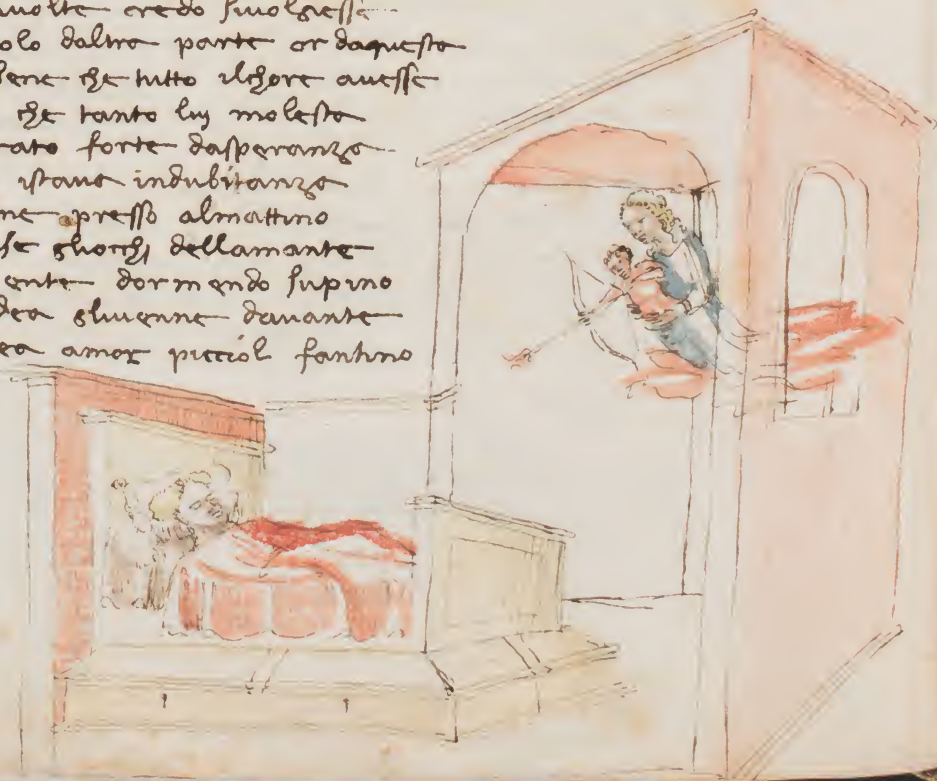 uolte credo siuolgesse
olo daltra parte or daquesta
bene che tutto ilchore auesse
che tanto luj molesta
rato forte dasperanza
istaua indubitanza
ne presso almattino
se gliocchj dellamante
ente dormendo supino
dea gliuenne dauante
ea amor picciol fantino